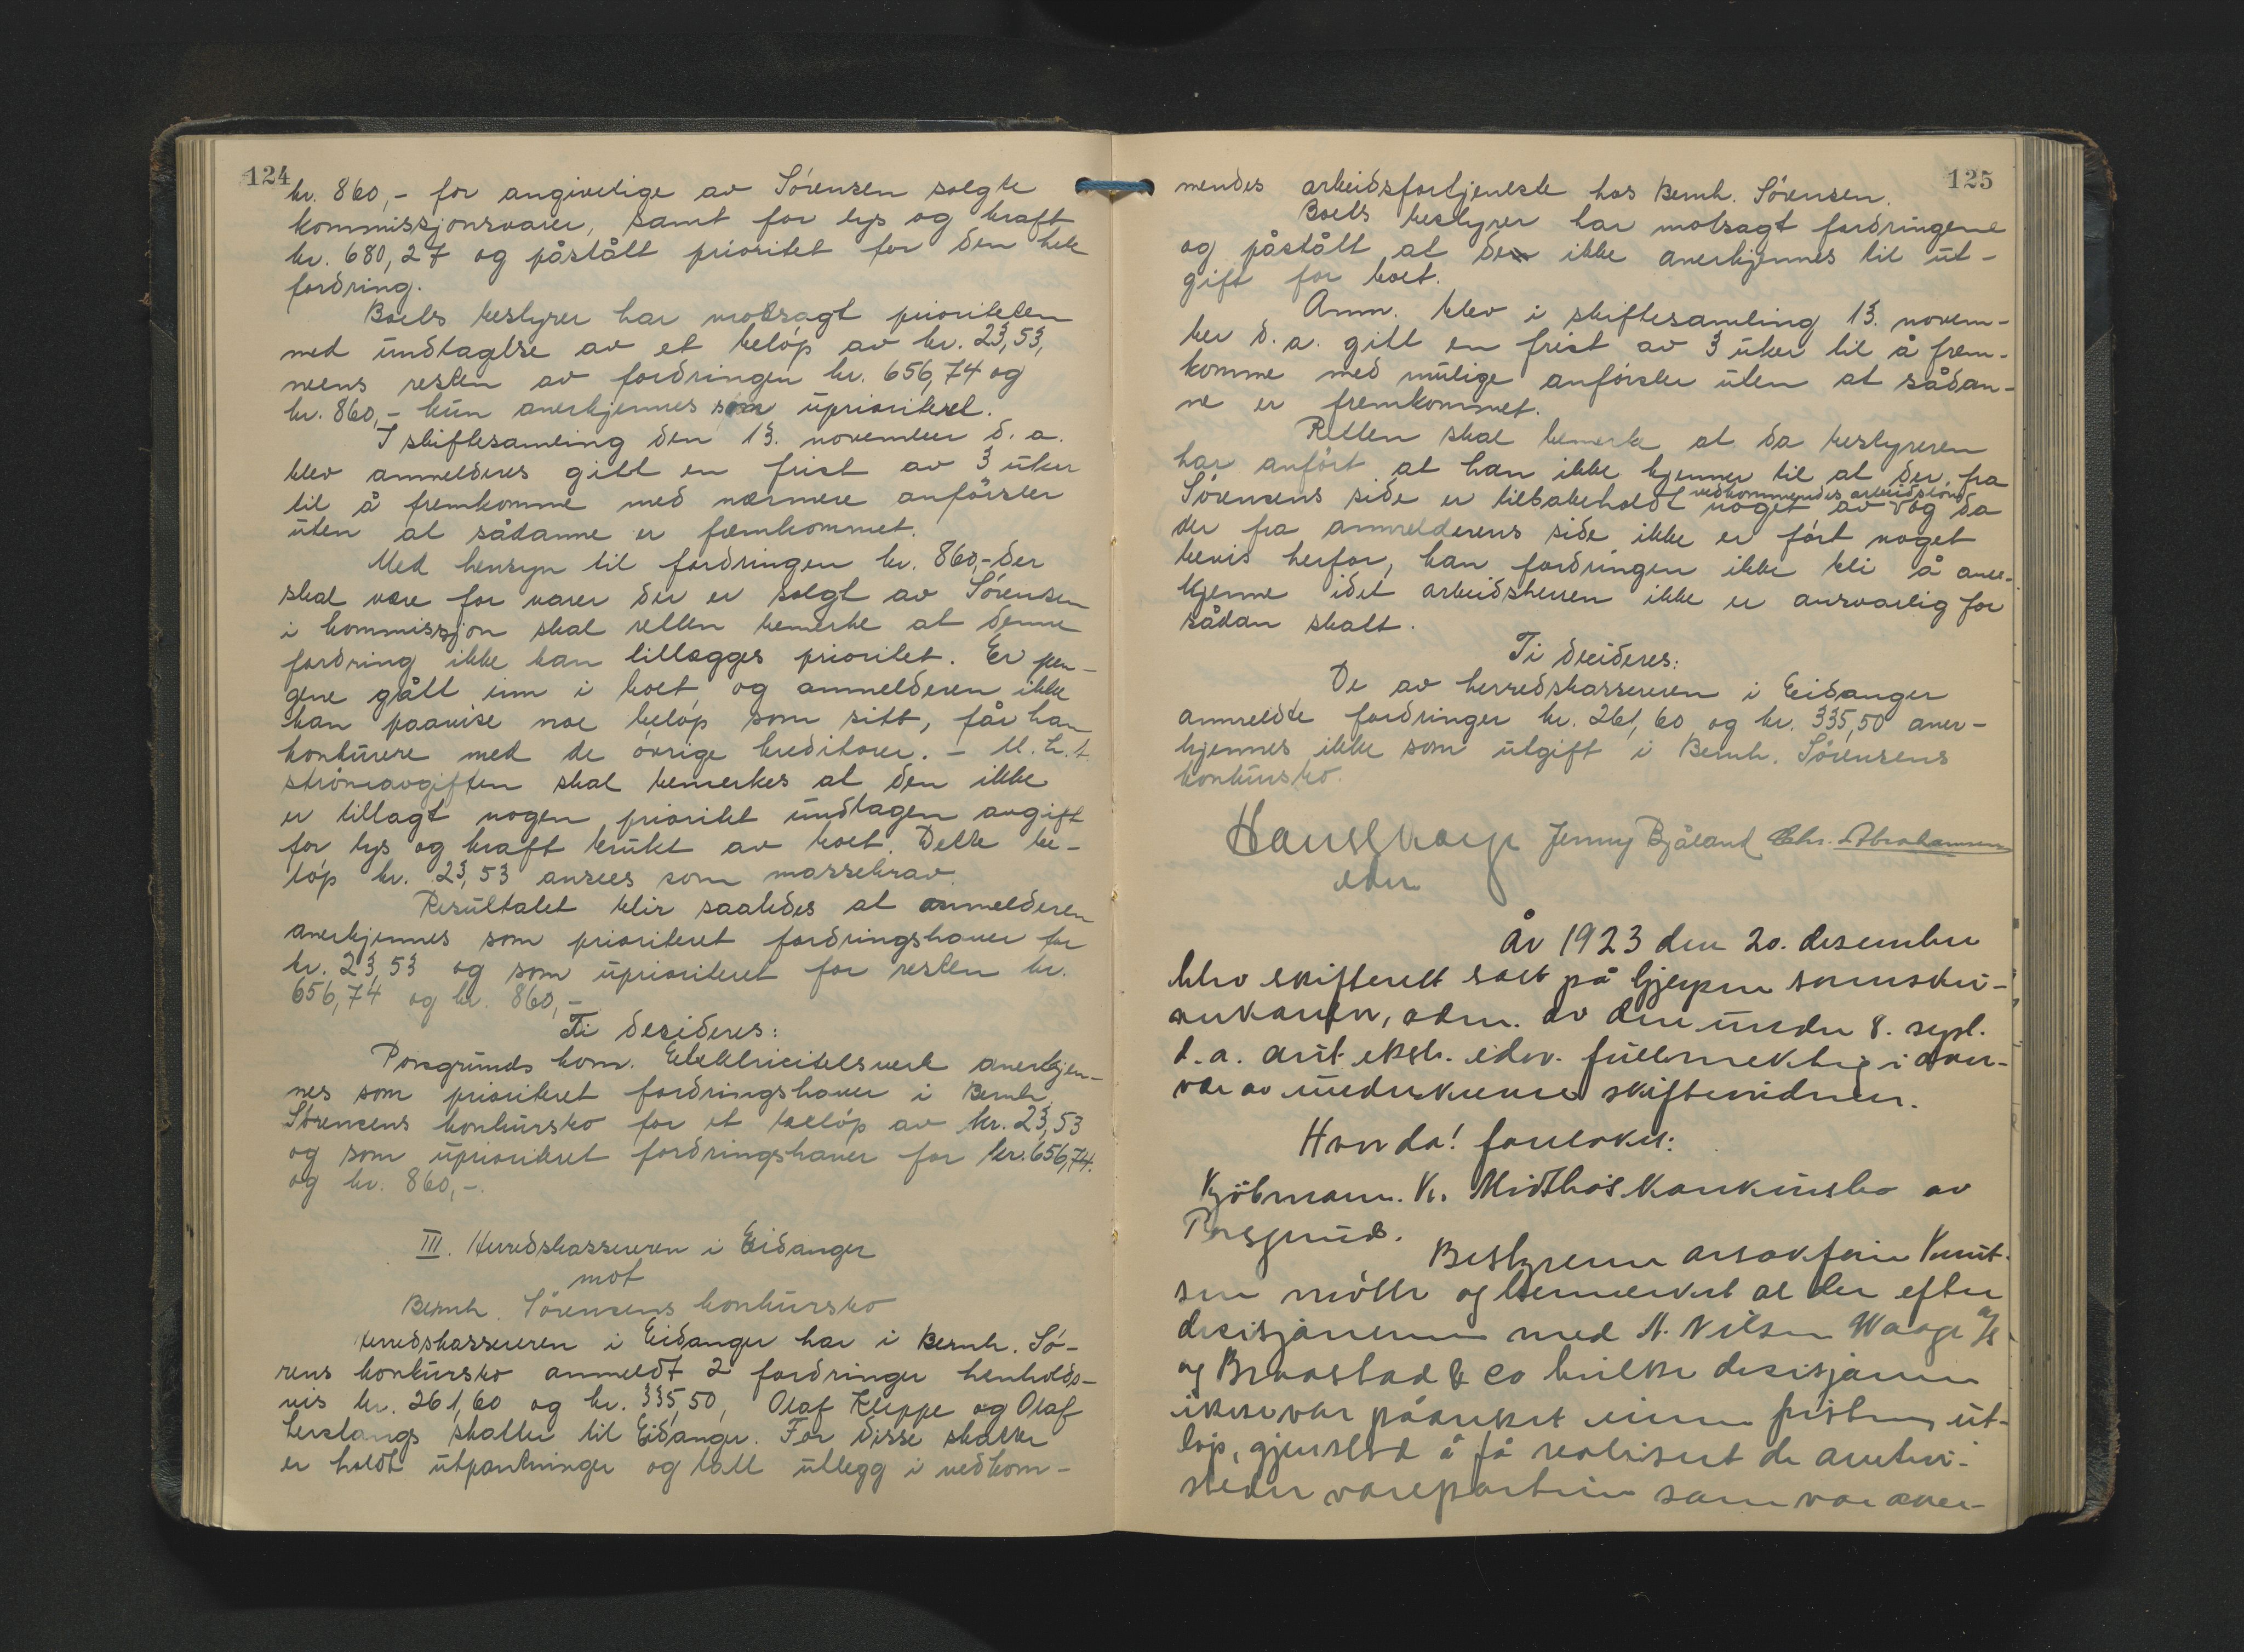 124
kr. 860,- for angivelige av Sörensen solgte
kommissjonsvarer, samt for lys og kraft
kr. 680,27 og påstått prioritet for den hele
fordring.
Boets bestyrer har motsagt prioriteten
med undtagelse av et belöp av kr. 23,53,
mens resten av fordringen kr. 656,74 og
kr. 860,- kun anerkjennes som uprioritert.
I skiftesamling den 13. november d. a.
blev anmelderes gitt en frist av 3 uker
til å fremkomme med nærmere anförsler
uten at sådanne er fremkommet.
Med hensyn til fordringen kr. 860,- der
skal være for varer der er solgt av Sörensen
i kommissjon skal retten bemerke at denne
fordring ikke kan tillægges prioritet. Er pen-
gene gått inn i boet og anmelderen ikke
kan paavise noe belöp som sitt, får han
konkurere med de övrige kreditorer. - M. h. t.
strömavgiften skal bemerkes at den ikke
er tillagt nogen prioritet undtagen avgift
for lys og kraft brukt av boet. Dette be-
löp kr. 23,53 ansees som massekrav.
Resultatet blir saaledes at anmelderen
anerkjennes som prioritert fordringshaver for
kr. 23,53 og som uprioritert for resten kr.
656,74 og kr. 860,-
Ti desideres:
Porsgrunds kom. Elektricitetsverk anerkjen-
nes som prioritert fordringshaver i Bernh.
Sörensens konkursbo for et belöp av kr. 23,53
og som uprioritert fordringshaver for kr. 656,74.
og kr. 860,-.
III. Herredskassereren i Eidanger
mot
Bernh. Sörensens konkursbo
Herredskassereren i Eidanger har i Bernh. Sö-
rens konkursbo anmeldt 2 fordringer henholds-
vis kr. 261,60 og kr. 335,50, Olaf Kleppe og Olaf
Herslangs skatter til Eidanger. For disse skatter
er holdt utpantninger og tatt utlegg i vedkom-
125
mendes arbeidsfortjeneste hos Bernh. Sörensen.
Boets bestyrer har motsagt fordringene
og påstått at den ikke anerkjennes til ut-
gift for boet.
Anm. blev i skiftesamling 13. novem-
ber d. a. gitt en frist av 3 uker til å frem-
komme med mulige anförsler uten at sådan-
ne er fremkommet.
Retten skal bemerke at da bestyreren
har anfört at han ikke kjenner til at der fra
Sörensens side er tilbakeholdt noget av vedkommendes arbeidslön og da
der fra anmelderens side ikke er fört noget
bevis herfor, kan fordringen ikke bli å aner-
kjenne idet arbeidsherren ikke er ansvarlig for
sådan skatt.
Ti desideres:
De av herredskassereren i Eidanger
anmeldte fordringer kr. 261,60 og kr. 335,50 aner-
kjennes ikke som utgift i Bernh. Sörensens
konkursbo.
Jenny Bjåland Chr. Abrahamsen
edsv
År 1923 den 20. desember
blev skifterett satt på Gjerpen sorenskri-
verkontor, adm. av den under 8. sept.
d. a. aut. ekstr. edsv. fullmektig i over-
vær av undertegnede skiftevidner.
Hvorda! foretokes:
Kjöbmann K. Midtbös konkursbo av
Porsgrund.
Bestyreren orsakförer Knut-
sen mötte og bemerket at der efter
desisjonerne med N. Nilsen Waage A/S
og Braastad & Co hvilke desisjoner
ikke var påanket innen fristens ut-
löp, gjenstod å få realisert de
varepartier som var aner-